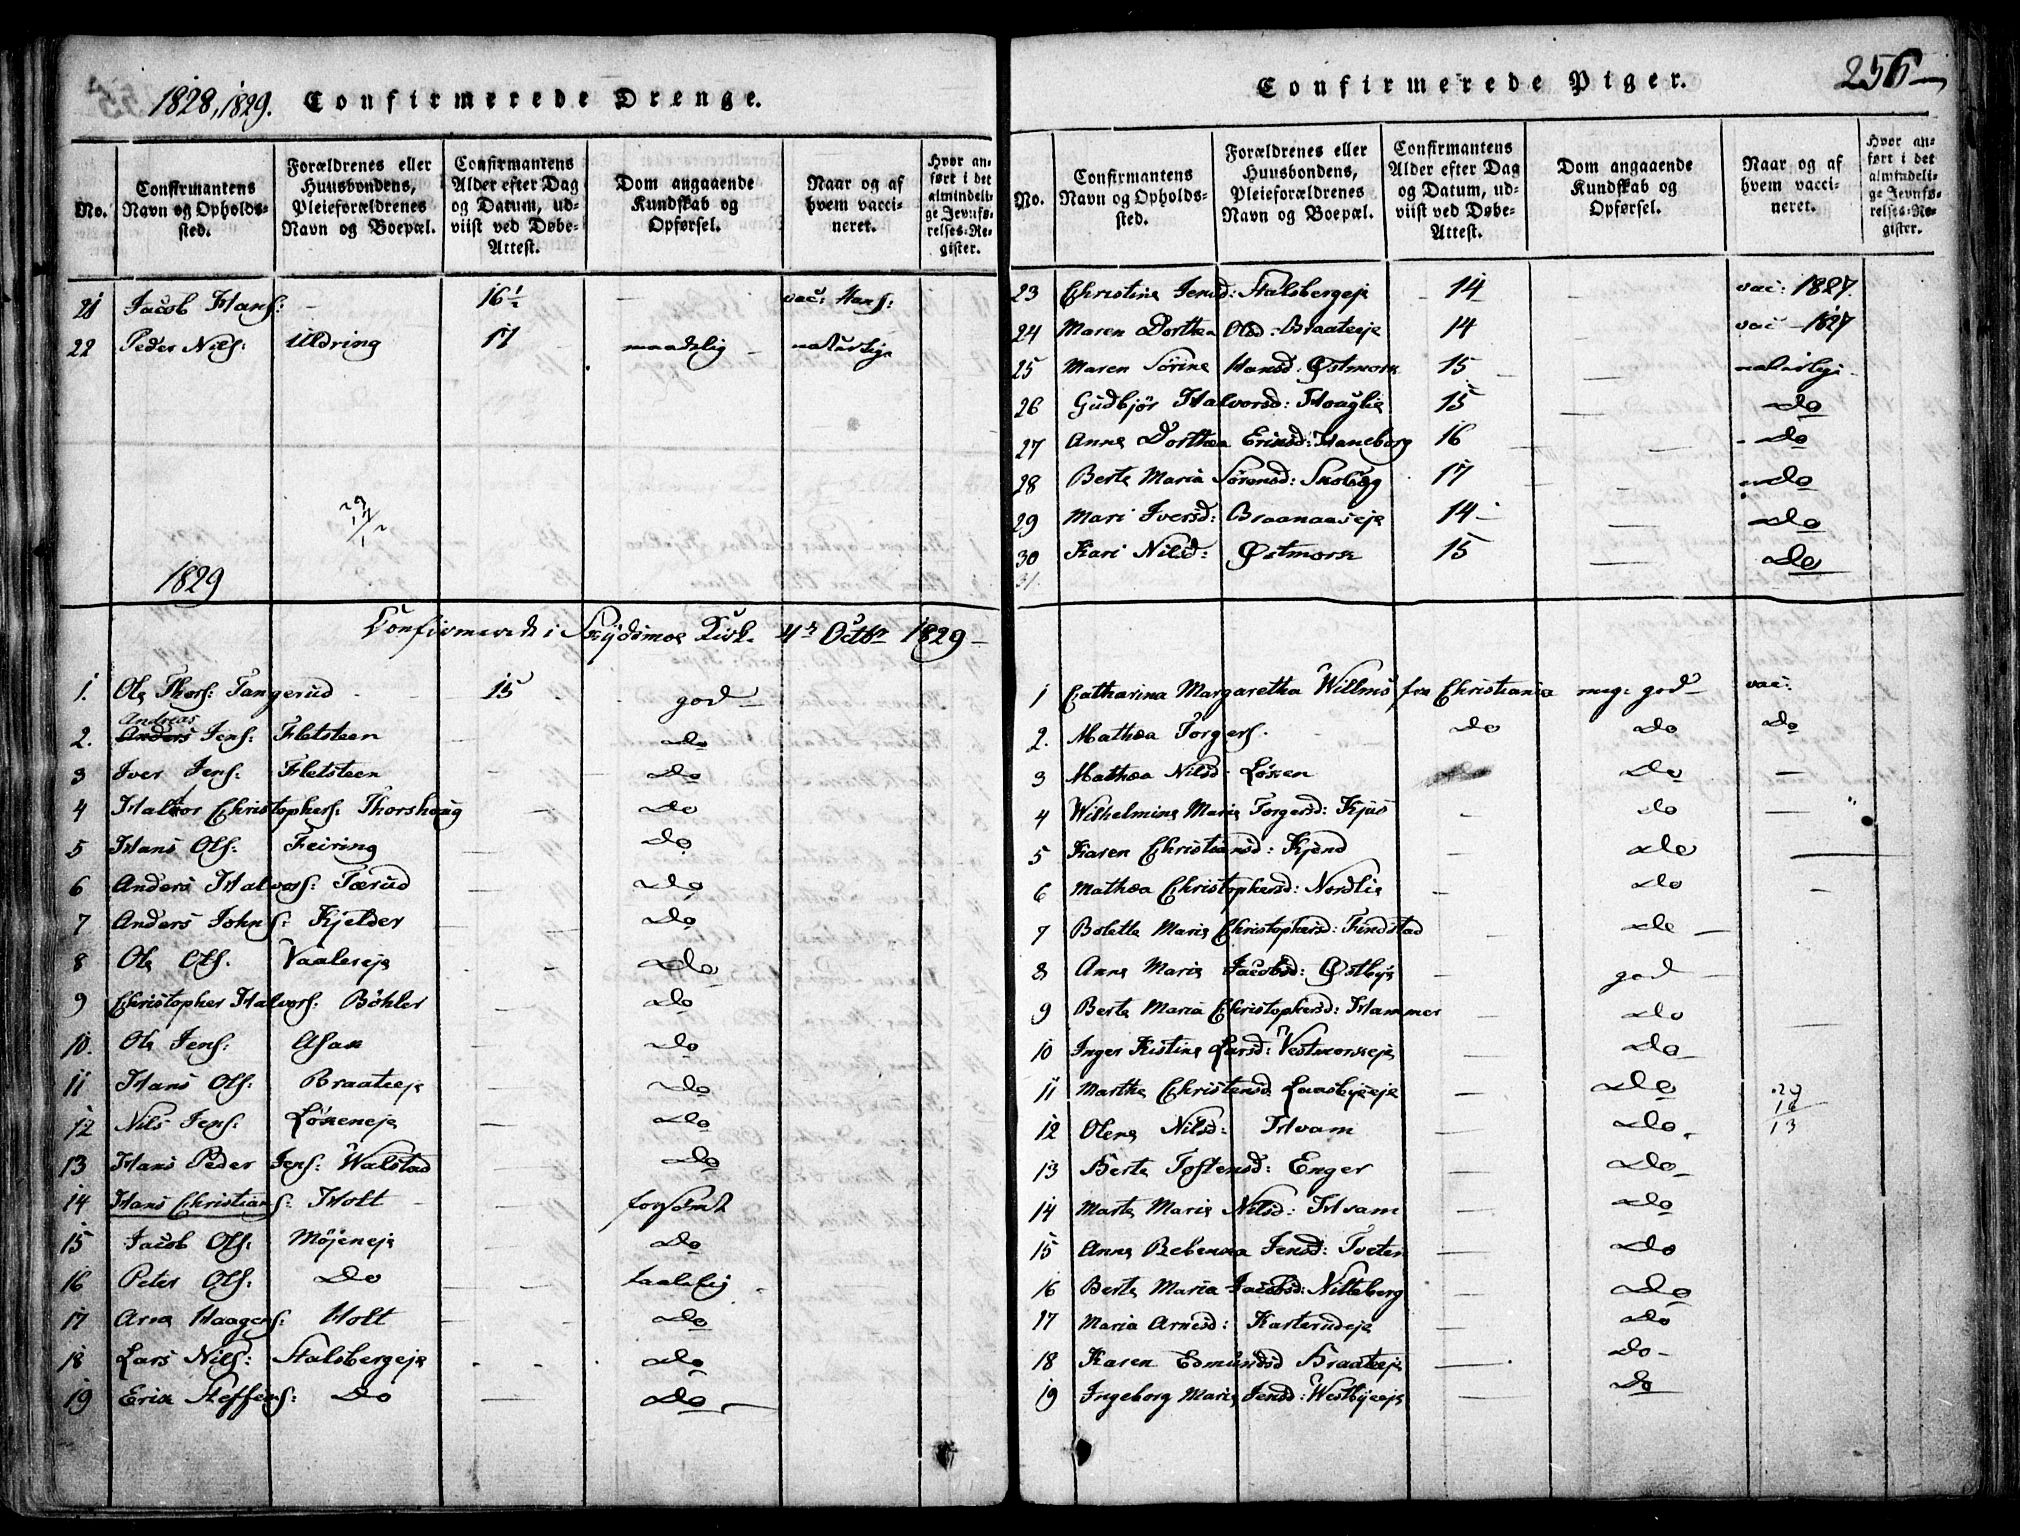 1828, 1829. Confirmerede Drenge.
No.
Confirmantens Navn og Opholds-sted.
Forældrenes eller Huusbondens, Pleieforældrenes Navn og Boepæl.
Confirmantens Alder efter Dag og Datum, ud-viist ved Døbe-Attest.
Dom angaaende Kundskab og Opførsel.
Naar og af hvem vacci-neret.
Hvor an-ført i det almindeli-ge Jevnfø-relses-Re-gister.
21 Jacob Hans: - 16½ - vac: Hans:
22 Peder Nils: Uldring 17 - maadelig - naturlige
1829
Confirmerede i Skydsmoe Kirke 4de Octbr 1829 -
1. Ole Thors: Tangerud - 15 god
2. Andreas Jens: Fletsteen - Do
3 Iver Jens: Fletsteen - Do
4 Halvor Christophers: Thorshaug - Do
5 Hans Ols: Feiring Do
6 Anders Halvors: Tærud - Do
7 Anders Johns: Kjelder - Do
8 Ole Ols. Vaalereje - Do
9 Christopher Halvors: Böhler - Do
10. Ole Jens: Asak - Do
11 Hans Ols: Braateeje - Do
12 Nils Jens: Lökeneje - Do
13 Hans Peder Jens: Walstad - Do
14 Hans Christians: Holt - forsömt
15 Jacob Ols: Møjeneje - Do
16 Peter Ols: Do - taalelig
17 Arne Haagens: Holt - Do
18 Lars Nils: Stalsbergeje - Do
19 Erik Steffens: Do - Do
Confirmerede Piger. 256
No.
Confirmantens Navn og Opholds-sted.
Forældrenes eller Huusbondens, Pleieforældrenes Navn og Boepæl.
Confirmantens Alder efter Dag og Datum, ud-viist ved Døbe-Attest.
Dom angaaende Kundskab og Opførsel.
Naar og af hvem vacci-neret.
Hvor an-ført i det almindeli-ge Jevnfø-relses-Re-gister.
23 Christine Jensd: Stalsbergeje 14 - vac: 1827.
24 Maren Dorthea Olsd: Braateeje 14 - vac - 1827
25 Maren Sørine Hansd: Østmork 15 - naturlige
26 Gudbjör Halvorsd: Hauglie 15 - Do
27 Anne Dorthea Eriksd: Haneborg 16 - Do
28 Berte Maria Sørensd: Skoløg 17 - Do
29 Mari Iversd: Braanaaseje 14 - Do
30 Kari Nilsd: Østmork 15 - Do
31.
1 Catharina Margaretha Willms fra Christiania meg: god - vac:
2. Mathea Torgers. Do Do Do
3 Mathea Nilsd: Löken Do -
4 Wilhelmine Marie Torgersd: Kjus - Do -
5 Karen Christiansd: Kjend Do -
6 Mathea Christophersd: Nordlie - Do -
7 Bolette Marie Christophersd: Findstad - Do -
8 Anne Marie Jacobsd: Østbye - god -
9 Berte Maria Christophersd: Hammer Do -
10 Inger Kistine Larsd: Vestmorkeje Do -
11 Marthe Christensd Laasbyeeje - Do
12 Olene Nilsd: Hvam - Do.
13 Berte Tostensd: Enger - Do -
14 Marte Marie Nilsd: Hvam - Do
15 Anne Rebecca Jensd: Tveter - Do
16 Berte Maria Jacobsd: Nitteberg - Do
17 Maria Arnesd: Karterudeje - Do
18 Karen Edmundsd Braateeje - Do -
19 Ingeborg Marie Jensd: Westbyeeje - Do